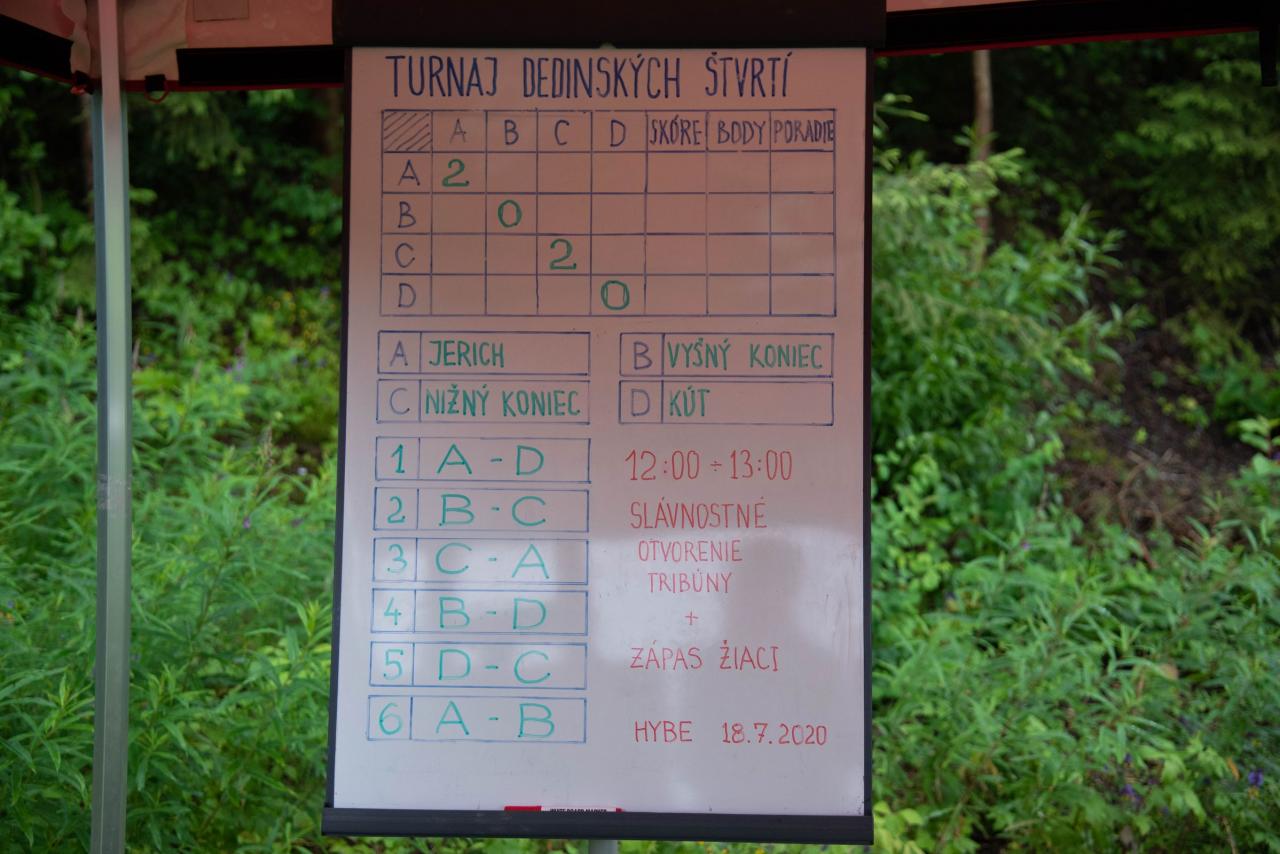 TURNAJ DEDINSKÝCH ŠTVRTÍ
A B C D SKÓRE BODY PORADIE
A 2
B 0
C 2
D 0
A JERICH
B VYŠNÝ KONIEC
C NIŽNÝ KONIEC
D KÚT
1 A - D
2 B - C
3 C - A
4 B - D
5 D - C
6 A - B
12:00 ÷ 13:00
SLÁVNOSTNÉ
OTVORENIE
TRIBÚNY
+
ZÁPAS ŽIACI
HYBE 18.7.2020